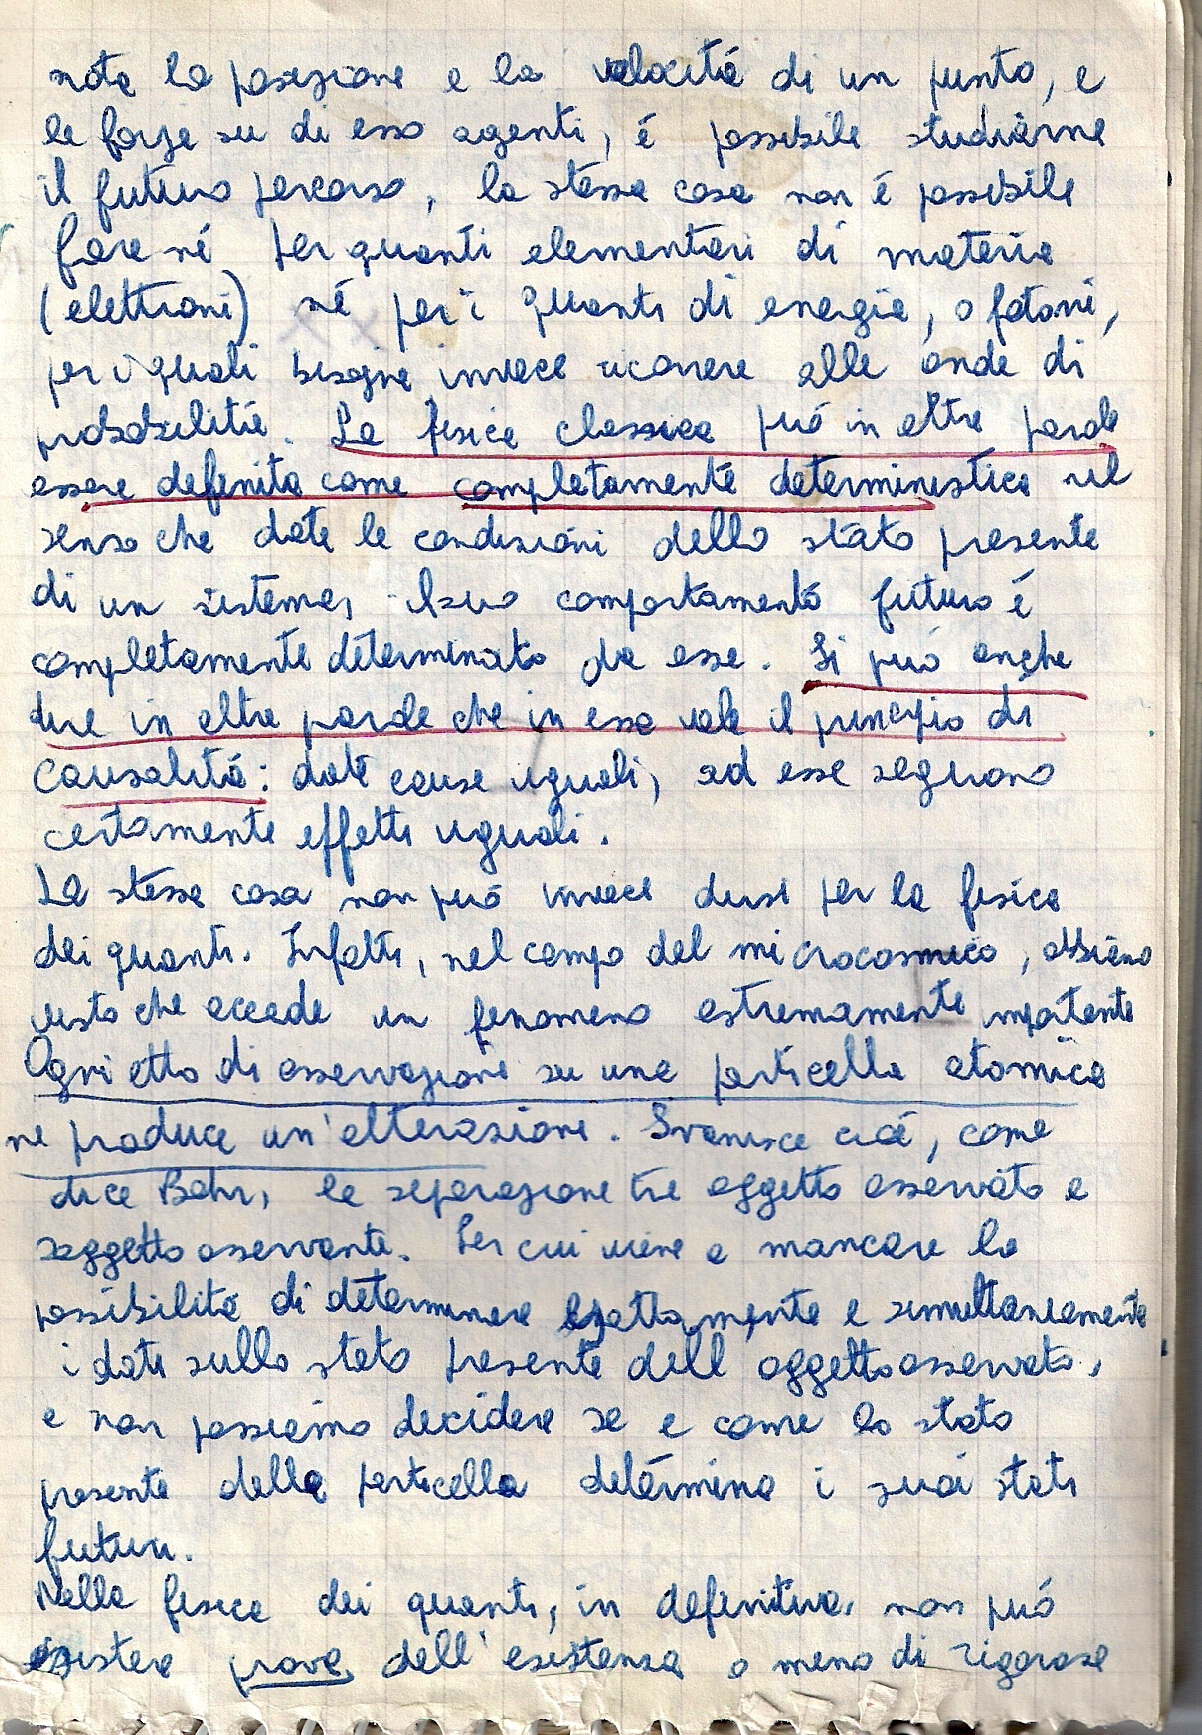 nota la posizione e la velocitá di un punto, e
le forze su di esso agenti, é possibile studiarne
il futuro percorso, la stessa cosa non é possibile
fare né per quanti elementari di materia
(elettroni) né per i quanti di energia, o fotoni,
per i quali bisogna invece ricorrere alle onde di
probabilitá. La fisica classica puó in altre parole
essere definita come completamente deterministica nel
senso che date le condizioni dello stato presente
di un sistema, il suo comportamento futuro é
completamente determinato da esse. Si puó anche
dire in altre parole che in essa vale il principio di
causalitá: date cause uguali, ad esse seguono
certamente effetti uguali.
La stessa cosa non puó invece dirsi per la fisica
dei quanti. Infatti, nel campo del microcosmico, abbiamo
visto che accade un fenomeno estremamente importante
Ogni atto di osservazione su una particella atomica
ne produce un'alterazione. Svanisce cioé, come
dice Bohr, la separazione tra oggetto osservato e
soggetto osservante. Per cui viene a mancare la
possibilitá di determinare esattamente e simultaneamente
i dati sullo stato presente dell'oggetto osservato,
e non possiamo decidere se e come lo stato
presente della particella determina i suoi stati
futuri.
Nella fisica dei quanti, in definitiva, non puó
esistere prova dell'esistenza o meno di rigorose